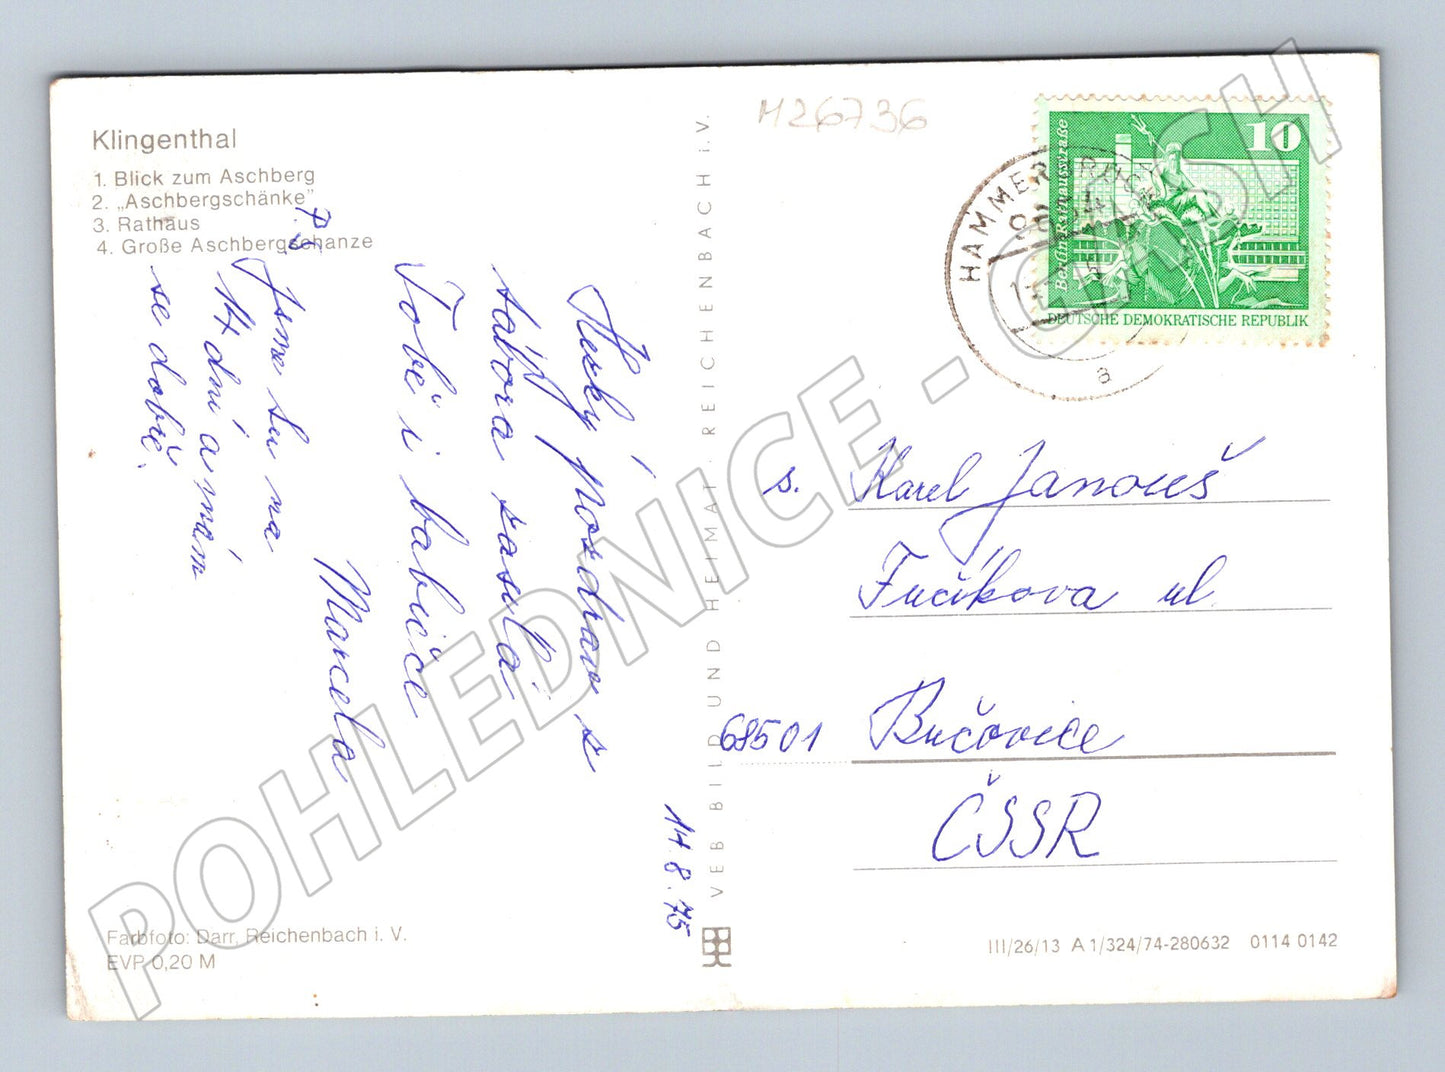 Klingenthal
1. Blick zum Aschberg
2. „Aschbergschänke”
3. Rathaus
4. Große Aschbergschanze
M26736
HAMMERBRÜCKE
a
Berlin Rathausstraße
10
DEUTSCHE DEMOKRATISCHE REPUBLIK
14.8.75
Hezký pozdrav z
tábora zasílá
Tobě i babičce
Marcela
P.S.
Jsme tu na
14 dní a mám
se dobře.
VEB BILD UND HEIMAT REICHENBACH i.V.
s. Karel Janouš
Fučíkova ul.
68501 Bučovice
ČSSR
Farbfoto: Darr, Reichenbach i. V.
EVP 0,20 M
III/26/13 A 1/324/74-280632 0114 0142
POHLEDNICE - CASH